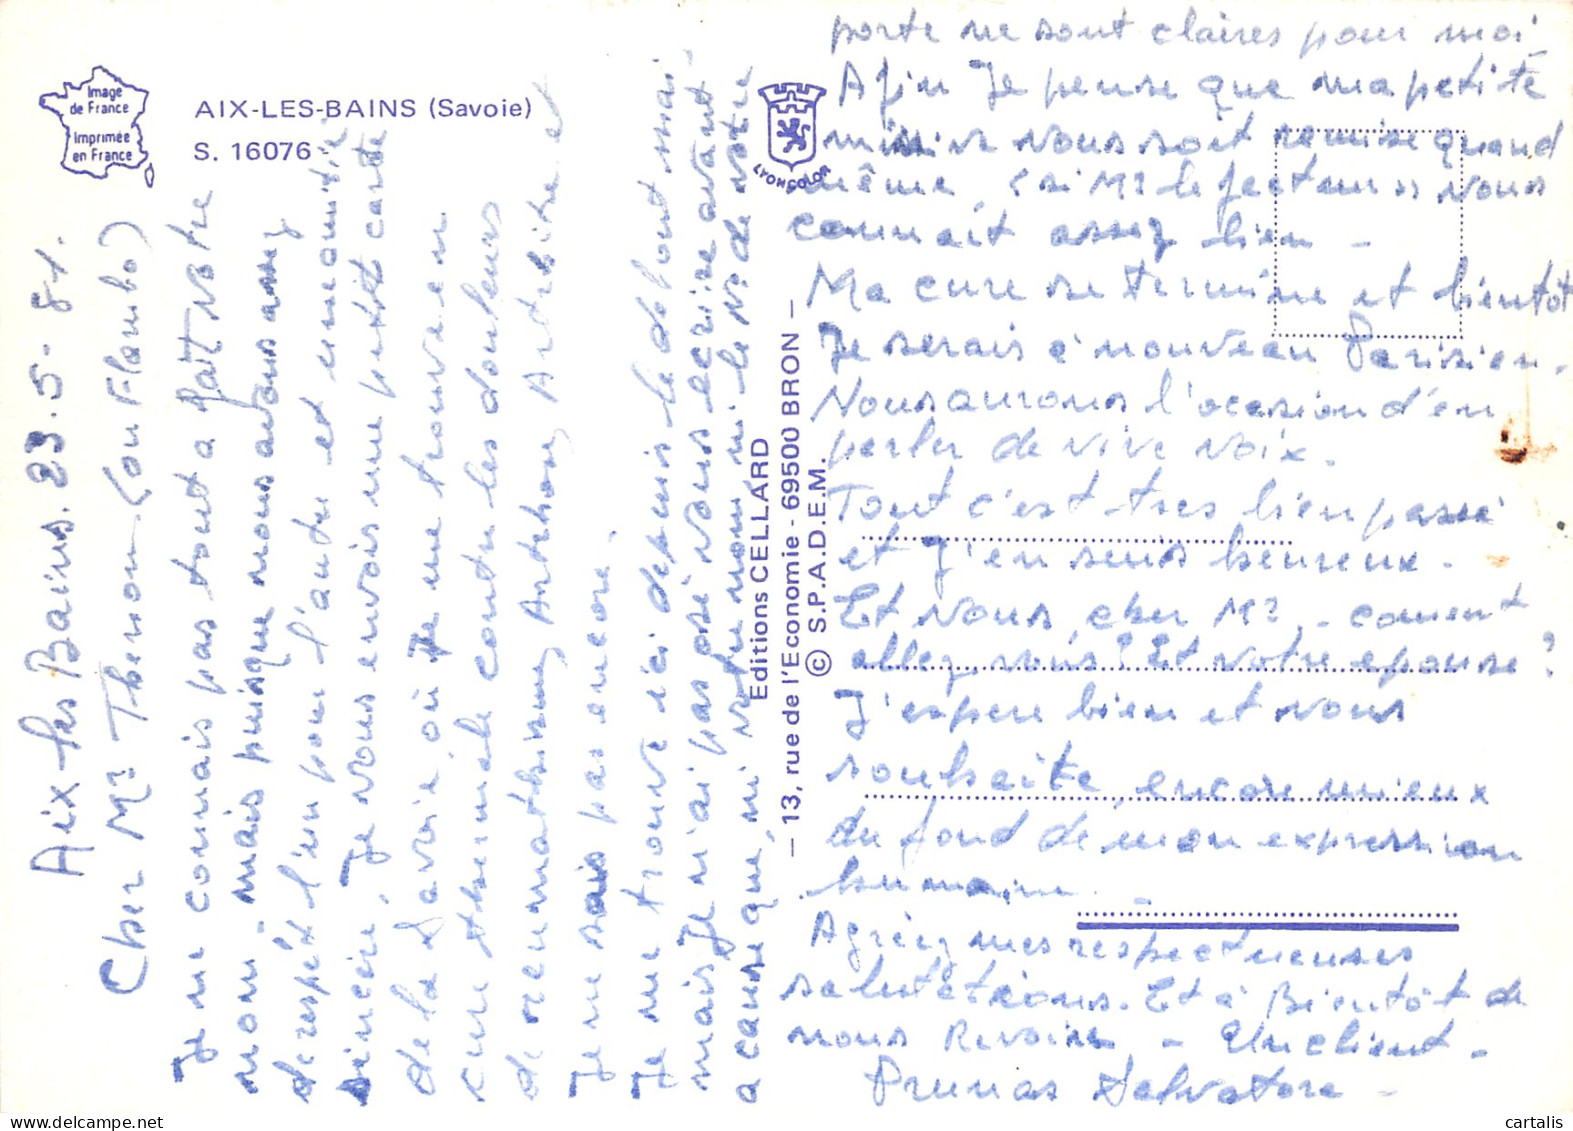 Image
de France
Imprimée
en France
AIX-LES-BAINS (Savoie)
S. 16076
LYONCOLOR
Editions CELLARD
— 13, rue de l'Economie - 69500 BRON —
© S.P.A.D.E.M.
Aix-les Bains. 23.5-81.
Cher Mr (ou Flambo)
Je ne connais pas tout a fait Votre
nom, mais puisque nous avons assez
de respét l'un pour l'autre et une amitié
sincére, Je vous envois une petit carte
de la Savoie, où Je me trouve en
cure thermale contre les douleurs
de reumatisme, Arthros, Arthrite et
Je ne sais pas encore.
Je me trouve ici depuis le debout mai
mais Je n'ai pas osé vous ecrire avant
a cause que, ni votre nom ni le No de votre
porte ne sont claires pour moi_
Afin Je pense que ma petite
missive vous soit remise quand
même, (si Mr le facteur) vous
connait assez bien -
Ma cure se termine et bientôt
Je serais à nouveau Parisien.
Nous aurons l'ocasion d'en
parler de vive voix.
Tout c'est tres bien passé
et J'en suis heureux.
Et Vous, cher Mr - coment
allez vous? Et votre epouse?
J'espere bien et vous
souhaite, encore mieux
du fond de mon expression
humaine -
Agréez mes respectueuses
salutations. Et à Bientôt de
nous Revoir - Un client -
Prunas Salvatore -
cartalis